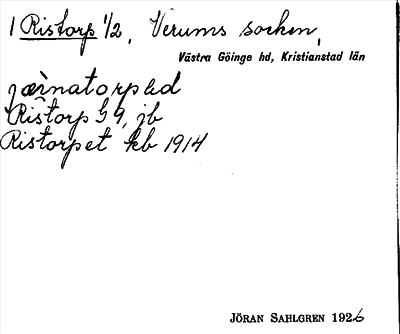 1 Ristorp 1/2, Verums socken,
Västra Göinge hd, Kristianstad län
jærnatorped
Ristorp G 9, jb
Ristorpet kb 1914
JÖRAN SAHLGREN 1926